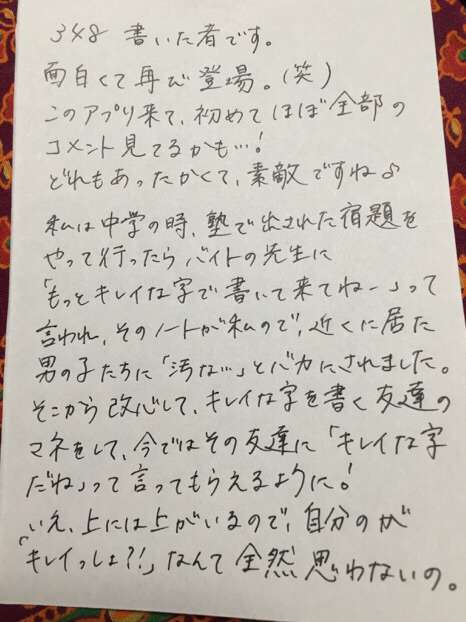 348 書いた者です。
面白くて再び登場。(笑)
このアプリ来て、初めてほぼ全部の
コメント見てるかも…!
どれもあったかくて、素敵ですね♪
私は中学の時、塾で出された宿題を
やって行ったらバイトの先生に
「もっとキレイな字で書いて来てねー」って
言われ、そのノートが私ので、近くに居た
男の子たちに「汚な…」とバカにされました。
そこから改心して、キレイな字を書く友達の
マネをして、今ではその友達に「キレイな字
だね」って言ってもらえるように!
いえ、上には上がいるので、自分のが
「キレイっしょ?!」なんて全然思わないの。